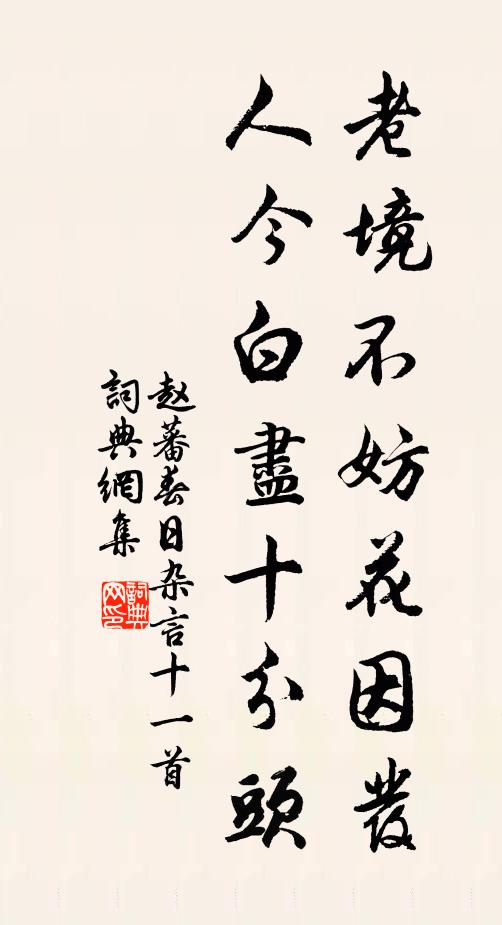 老境不妨花因發
人今白盡十分頭
赵蕃春日杂言十一首
詞典網集
詞典網印